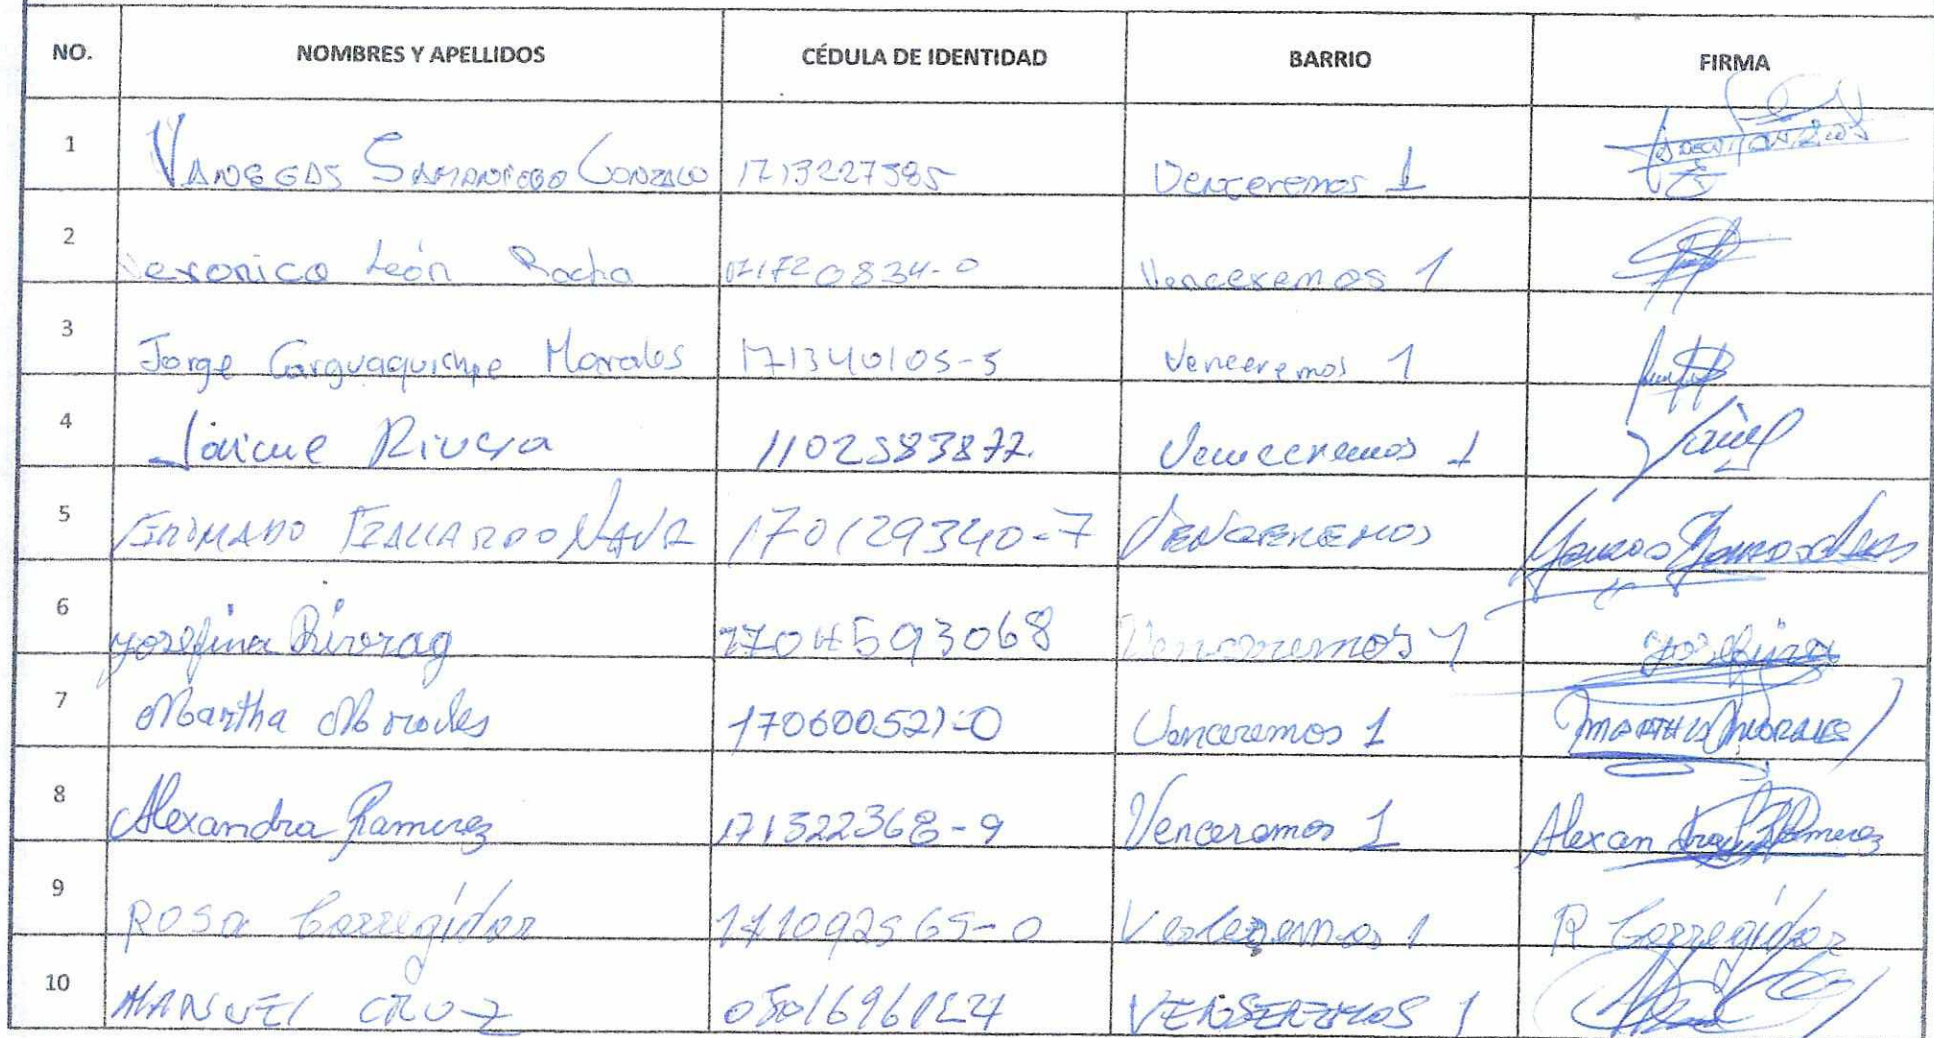 NO. NOMBRES Y APELLIDOS CÉDULA DE IDENTIDAD BARRIO FIRMA
1 VANEGAS SAMANIEGO GONZALO 1713227585 Venceremos 1
2 Veronica León Rocha Venceremos 1
3 Jorge Carguaquishpe Morales 171340105-5 Venceremos 1
4 Jaime Rivera 1102583872. Venceremos 1 Jaime
5 170129340-7 VENCEREMOS
6 Josefina Rivera g 1704593068 Venceremos 1 Josefina
7 Martha Morales 170600521-0 Venceremos 1 MARTHA MORALES
8 Alexandra Ramirez 171322368-9 Venceremos 1 Alexandra Ramirez
9 ROSA Corregidor 171092565-0 1 R Corregidor
10 MANUEL CRUZ VENSEREMOS 1